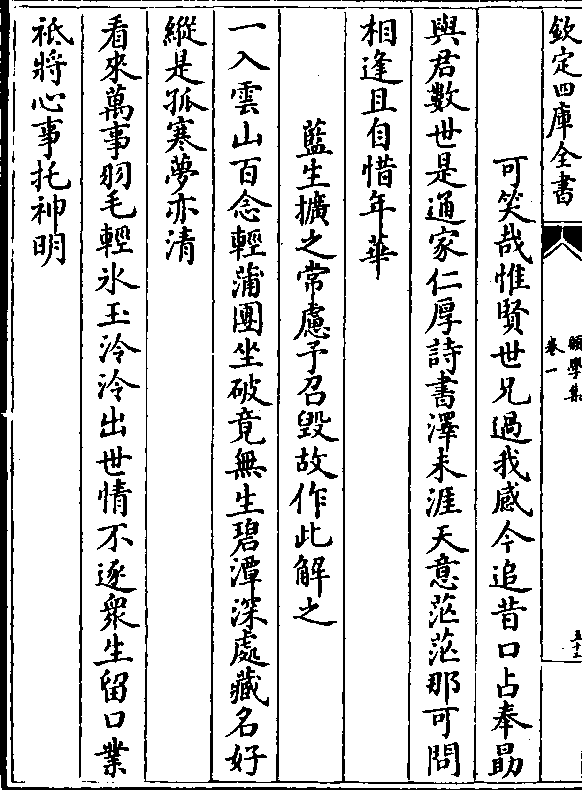 欽定四庫全書
頤學集
卷一
可笑哉惟賢世兄過我感今追昔口占奉勗
與君數世是通家仁厚詩書澤未涯天意茫茫那可問
相逢且自惜年華
藍生擴之常慮予召毀故作此解之
一入雲山百念輕蒲團坐破竟無生碧潭深處藏名好
縱是孤寒夢亦清
看來萬事羽毛輕氷玉泠泠出世情不逐衆生留口業
祗將心事托神明